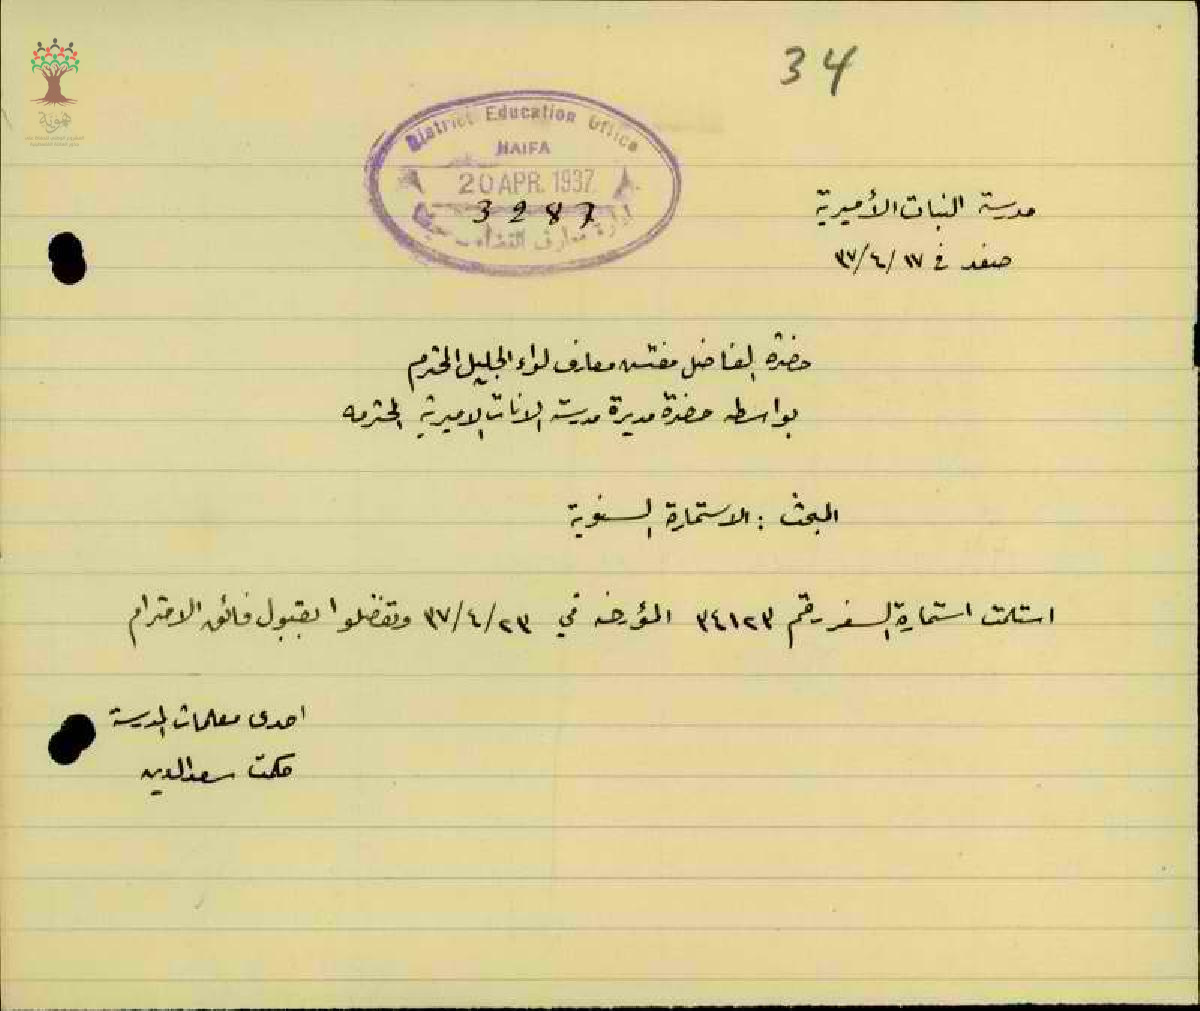 34
District Education Office
HAIFA
20 APR. 1937
3287
ادارة معارف القضاء حيفا
هوية
مدرسة البنات الأميرية
صفد في ١٧/٤/٣٧
حضرة الفاضل مفتش معارف لواء الجليل المحترم
بواسطه حضرة مديرة مدرسة الاناث الاميرية المحترمه
المبحث : الاستمارة السنوية
استلمت استمارة السفر رقم ٣٤١٢٣ المؤرخه في ٢٣/٤/٣٧ وتفضلوا بقبول فائق الاحترام
احدى معلمات المدرسة
حكمت سعد الدين